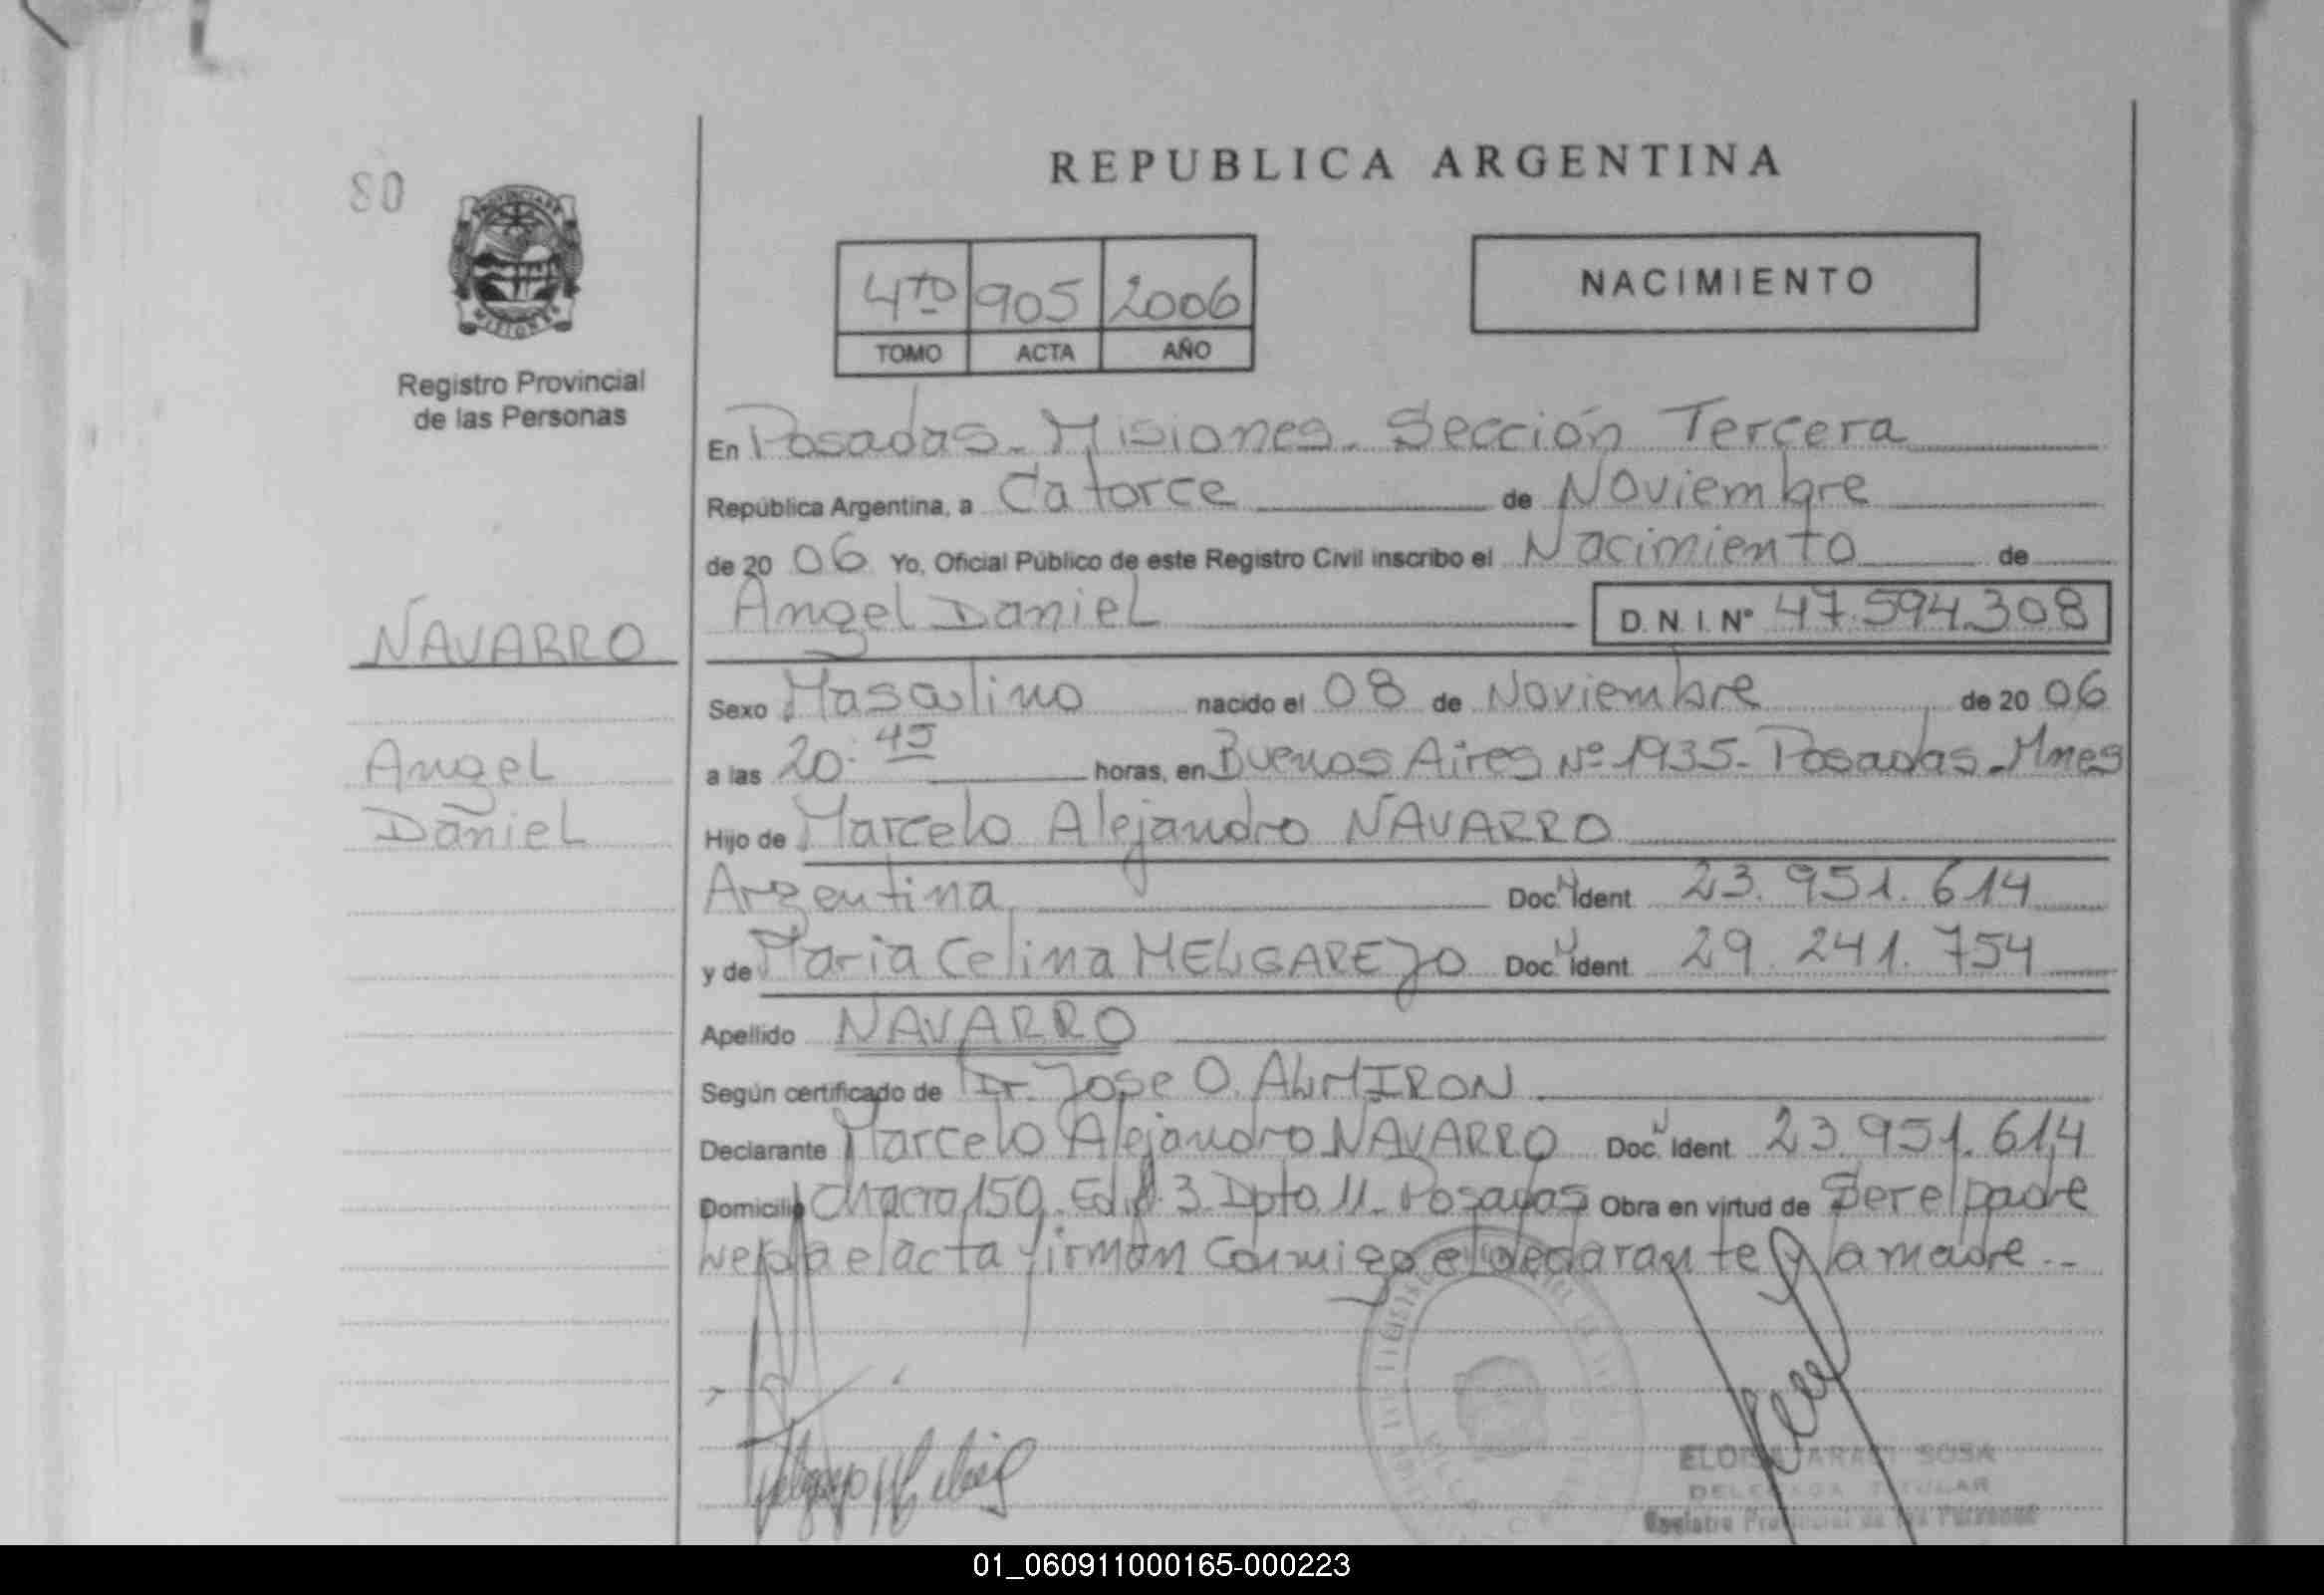 80
REPUBLICA ARGENTINA
4to 905 2006
TOMO ACTA AÑO
NACIMIENTO
PROVINCIA DE
MISIONES
Registro Provincial
de las Personas
En Posadas - Misiones - Sección Tercera
República Argentina, a Catorce de Noviembre
de 2006 Yo, Oficial Público de este Registro Civil inscribo el Nacimiento de
Angel Daniel D.N.I. N° 47.594.308
NAVARRO
Sexo Masculino nacido el 08 de Noviembre de 2006
Angel
a las 20:45 horas, en Buenos Aires Nº 1935 - Posadas - Mnes
Daniel
Hijo de Marcelo Alejandro NAVARRO
Argentina Doc. Ident 23.951.614
y de Maria Celina MELGAREJO Doc. Ident 29.241.754
Apellido NAVARRO
Según certificado de Dr. Jose O. ALMIRON
Declarante Marcelo Alejandro NAVARRO Doc. Ident 23.951.614
Domicilio Chacra 150 - Edif. 3 - Dpto 11 - Posadas Obra en virtud de Ser el padre
el acta firman Conmigo el declarante y la madre --
SOSA
TITULAR
Registro Provincial de las Personas
01_060911000165-000223